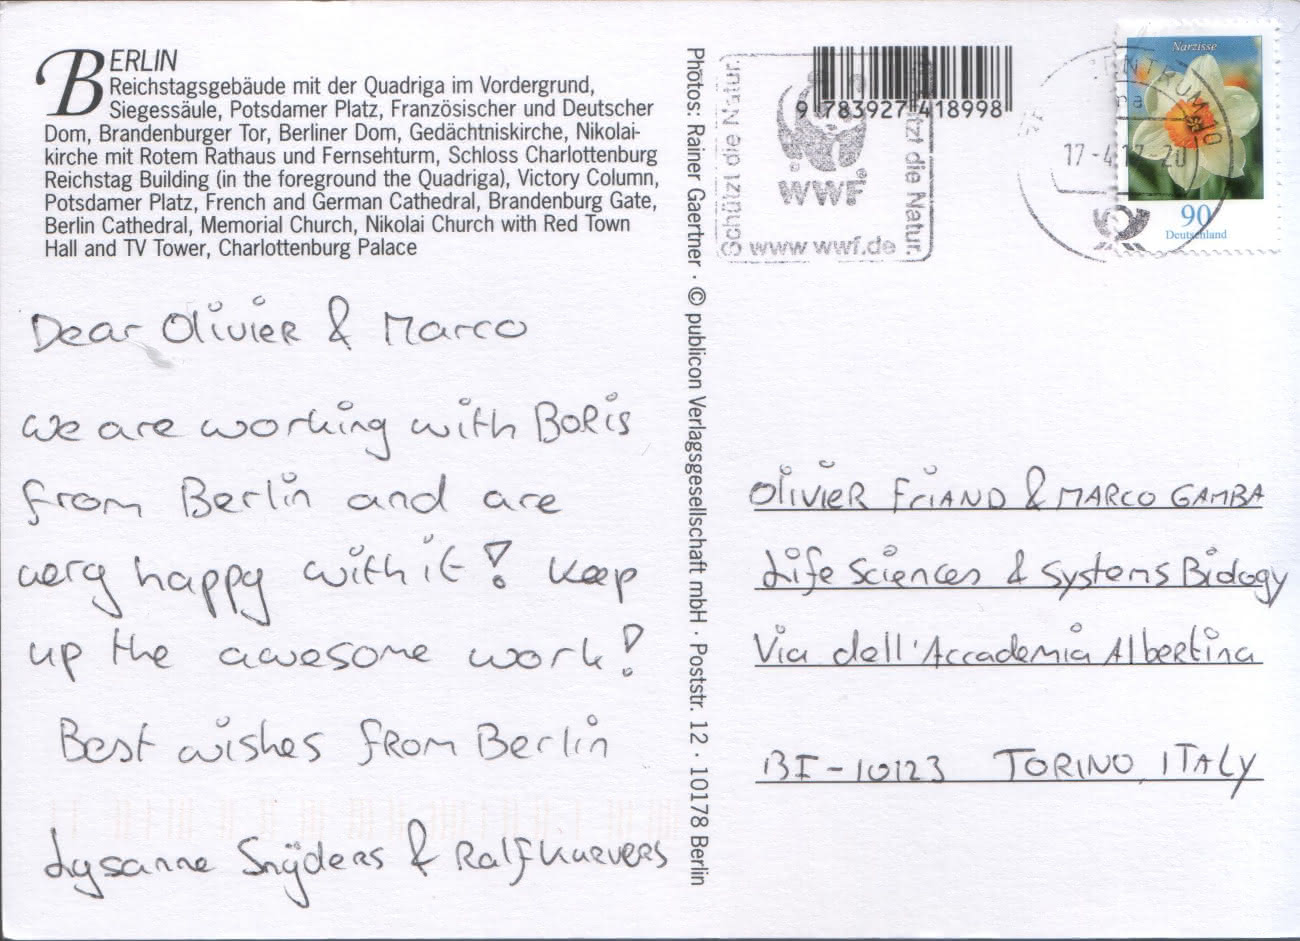 BERLIN
Reichstagsgebäude mit der Quadriga im Vordergrund,
Siegessäule, Potsdamer Platz, Französischer und Deutscher
Dom, Brandenburger Tor, Berliner Dom, Gedächtniskirche, Nikolai-
kirche mit Rotem Rathaus und Fernsehturm, Schloss Charlottenburg
Reichstag Building (in the foreground the Quadriga), Victory Column,
Potsdamer Platz, French and German Cathedral, Brandenburg Gate,
Berlin Cathedral, Memorial Church, Nikolai Church with Red Town
Hall and TV Tower, Charlottenburg Palace
Dear Olivier & Marco
we are working with Boris
from Berlin and are
very happy with it! Keep
up the awesome work!
Best wishes from Berlin
Lysanne Snijders & Ralf Kurvers
Photos: Rainer Gaertner · © publicon Verlagsgesellschaft mbH · Poststr. 12 · 10178 Berlin
9 783927 418998
Schützt die Natur.
WWF
®
www wwf.de
Schützt die Natur.
17-4.12-20
Narzisse
90
Deutschland
OLIVIER FRIAND & MARCO GAMBA
Life Sciences & Systems Biology
Via dell'Accademia Albertina
BI-10123 TORINO, ITALY